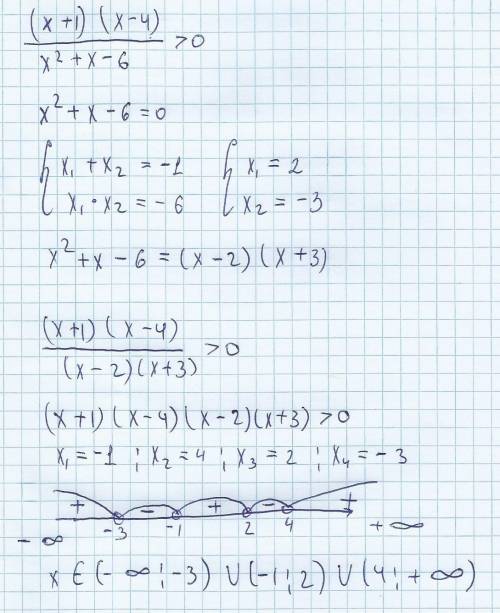 (x+1)(x-4)
x²+x-6 >0
x²+x-6=0
x₁+x₂=-1 x₁=2
x₁·x₂=-6 x₂=-3
x²+x-6=(x-2)(x+3)
(x+1)(x-4)
(x-2)(x+3) >0
(x+1)(x-4)(x-2)(x+3)>0
x₁=-1; x₂=4; x₃=2; x₄=-3
+ - + - +
-∞ -3 -1 2 4 +∞
x∈(-∞;-3)∪(-1;2)∪(4;+∞)